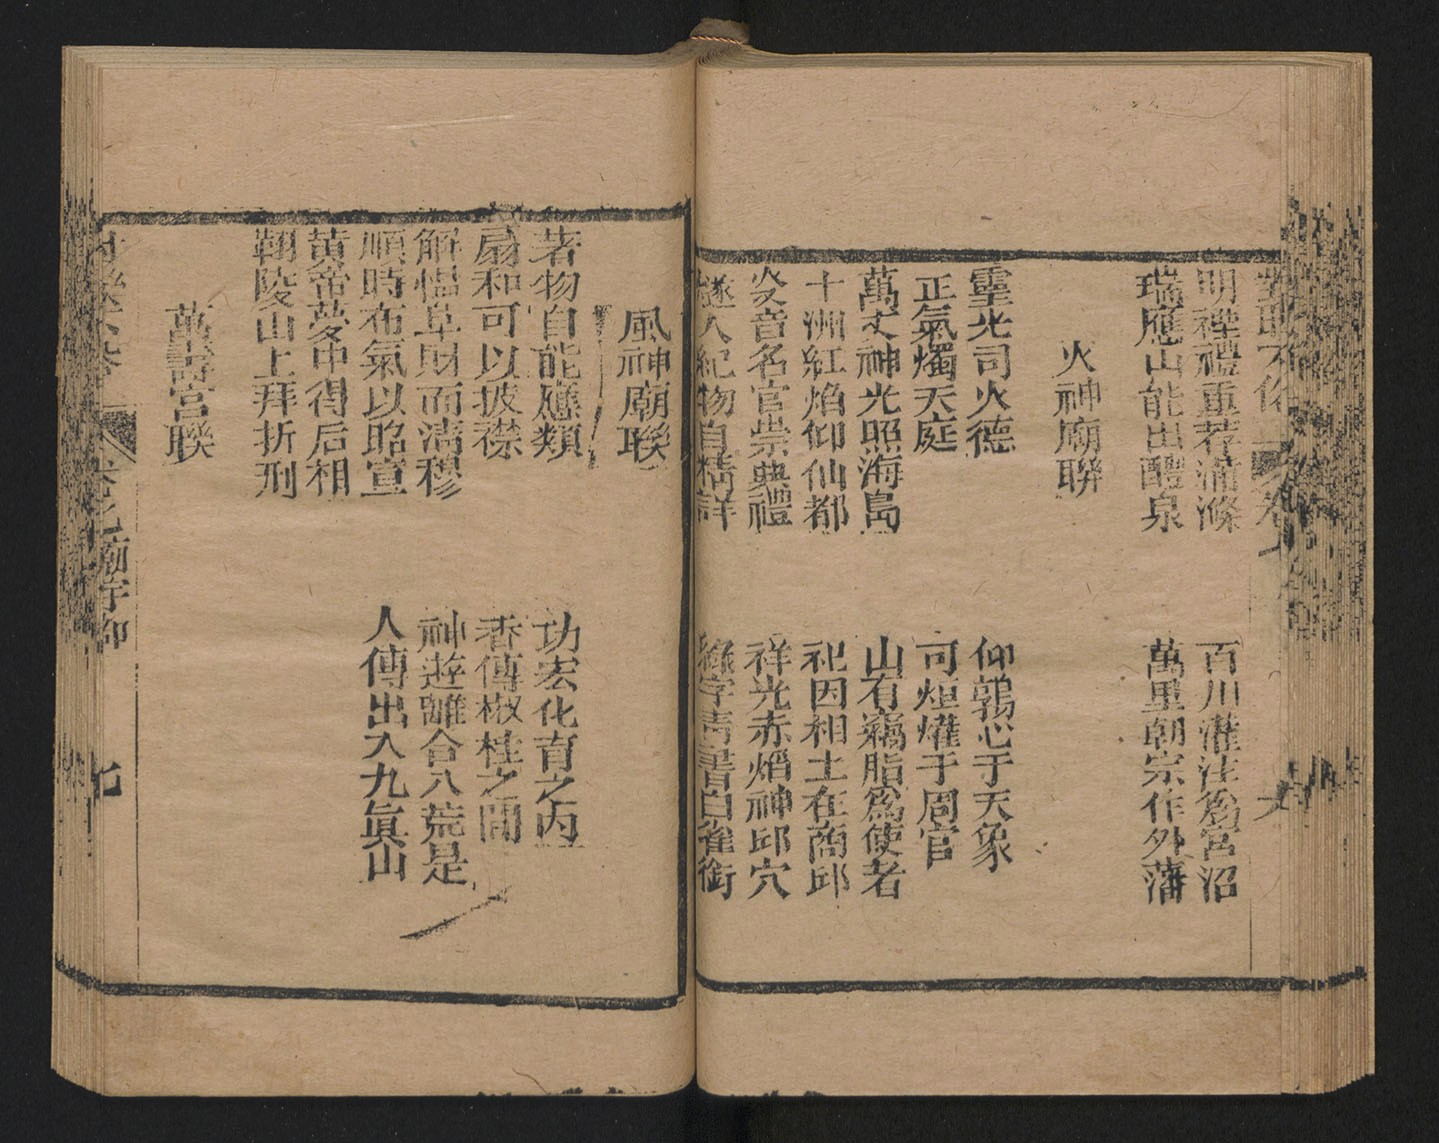 明禋禮重荐蒲滌　百川灌注爲宮沼
瑞應山能出醴泉　萬里朝宗作外藩
火神廟聯
靈光司火德　仰鶉心于天象
正氣燭天庭　司烜爟于周官
萬丈神光照海島　山有竊脂爲使者
十洲紅焰仰仙都　祀因相土在商邱
炎音名官崇典禮　祥光赤熖神邱穴
燧人紀物自精詳　綠字靑書白雀銜
風神廟聯
著物自能應類　功宏化育之內
扇和可以披襟　香傳椒桂之間
解慍阜財而清穆　神遊離合八荒是
順時布氣以昭宣　人傳出入九眞山
黃帝夢中得后相
朝陵山上拜折刑
萬壽宮聯
廟宇
七